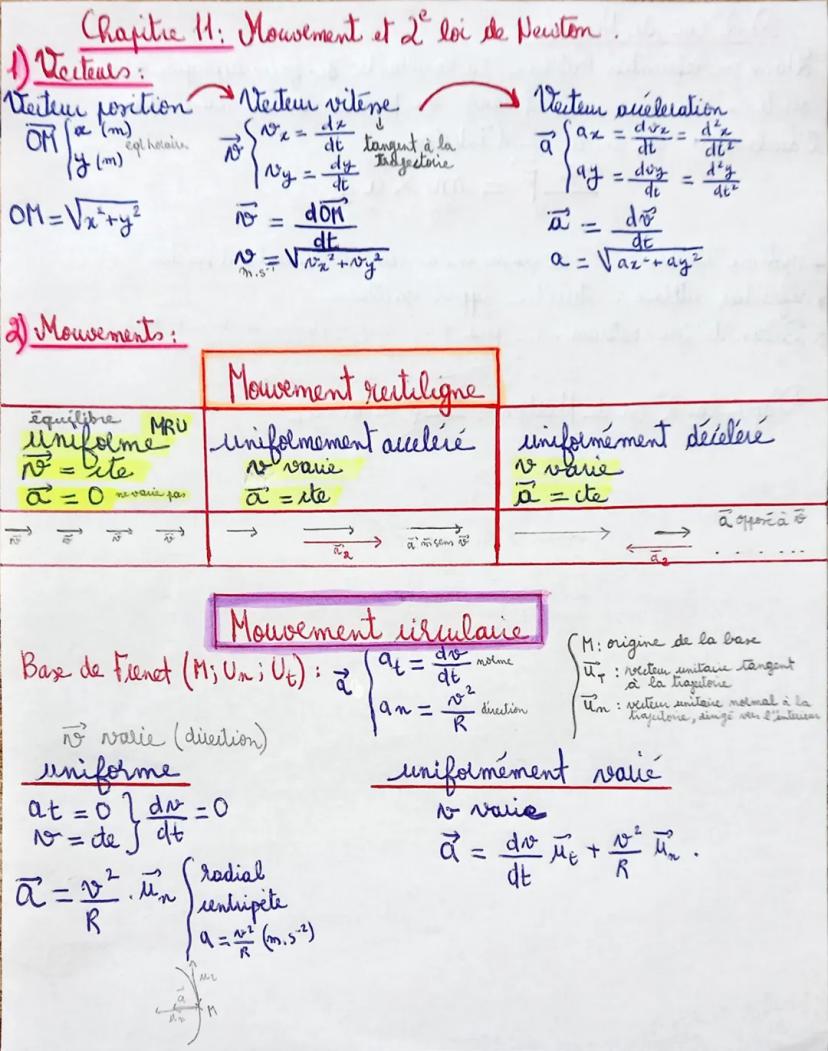 Chapitre 11: Mouvement et 2e loi de Newton.
1) Vecteurs:
Vecteur position → Vecteur vitesse → Vecteur accéleration
OM⃗ { x (m) y (m) eq horaire
v⃗ { vx = dx/dt vy = dy/dt
↓ tangent à la trajectoire
a⃗ { ax = dvx/dt = d²x/dt² ay = dvy/dt = d²y/dt²
OM = √(x²+y²)
v⃗ = dOM⃗/dt
a⃗ = dv⃗/dt
v = √(vx²+vy²)
m.s⁻¹
a = √(ax²+ay²)
2) Mouvements:
Mouvement rectiligne
équilibre
uniforme MRU
v⃗ = cte
a⃗ = 0 ne varie pas
uniformement acceléré
v varie
a⃗ = cte
uniformément décéléré
v varie
a⃗ = cte
v⃗ v⃗ v⃗ v⃗
a⃗2 a⃗ m̂ sens v⃗
a⃗2 a⃗ opposé à v⃗
Mouvement circulaire
Base de Frenet (M; Un; Ut): a⃗ { at = dv/dt norme an = v²/R direction
M: origine de la base
u⃗T: vecteur unitaire tangent
à la trajectoire
u⃗n: vecteur unitaire normal à la
trajectoire, dirigé vers l'interieur
v⃗ varie (direction)
uniforme
at = 0 } dv/dt = 0
v = cte
a⃗ = v²/R . u⃗n { radial
centripète
a = v²/R (m.s⁻²)
uniformément varié
v varie
a⃗ = dv/dt u⃗t + v²/R u⃗n.
a⃗
M